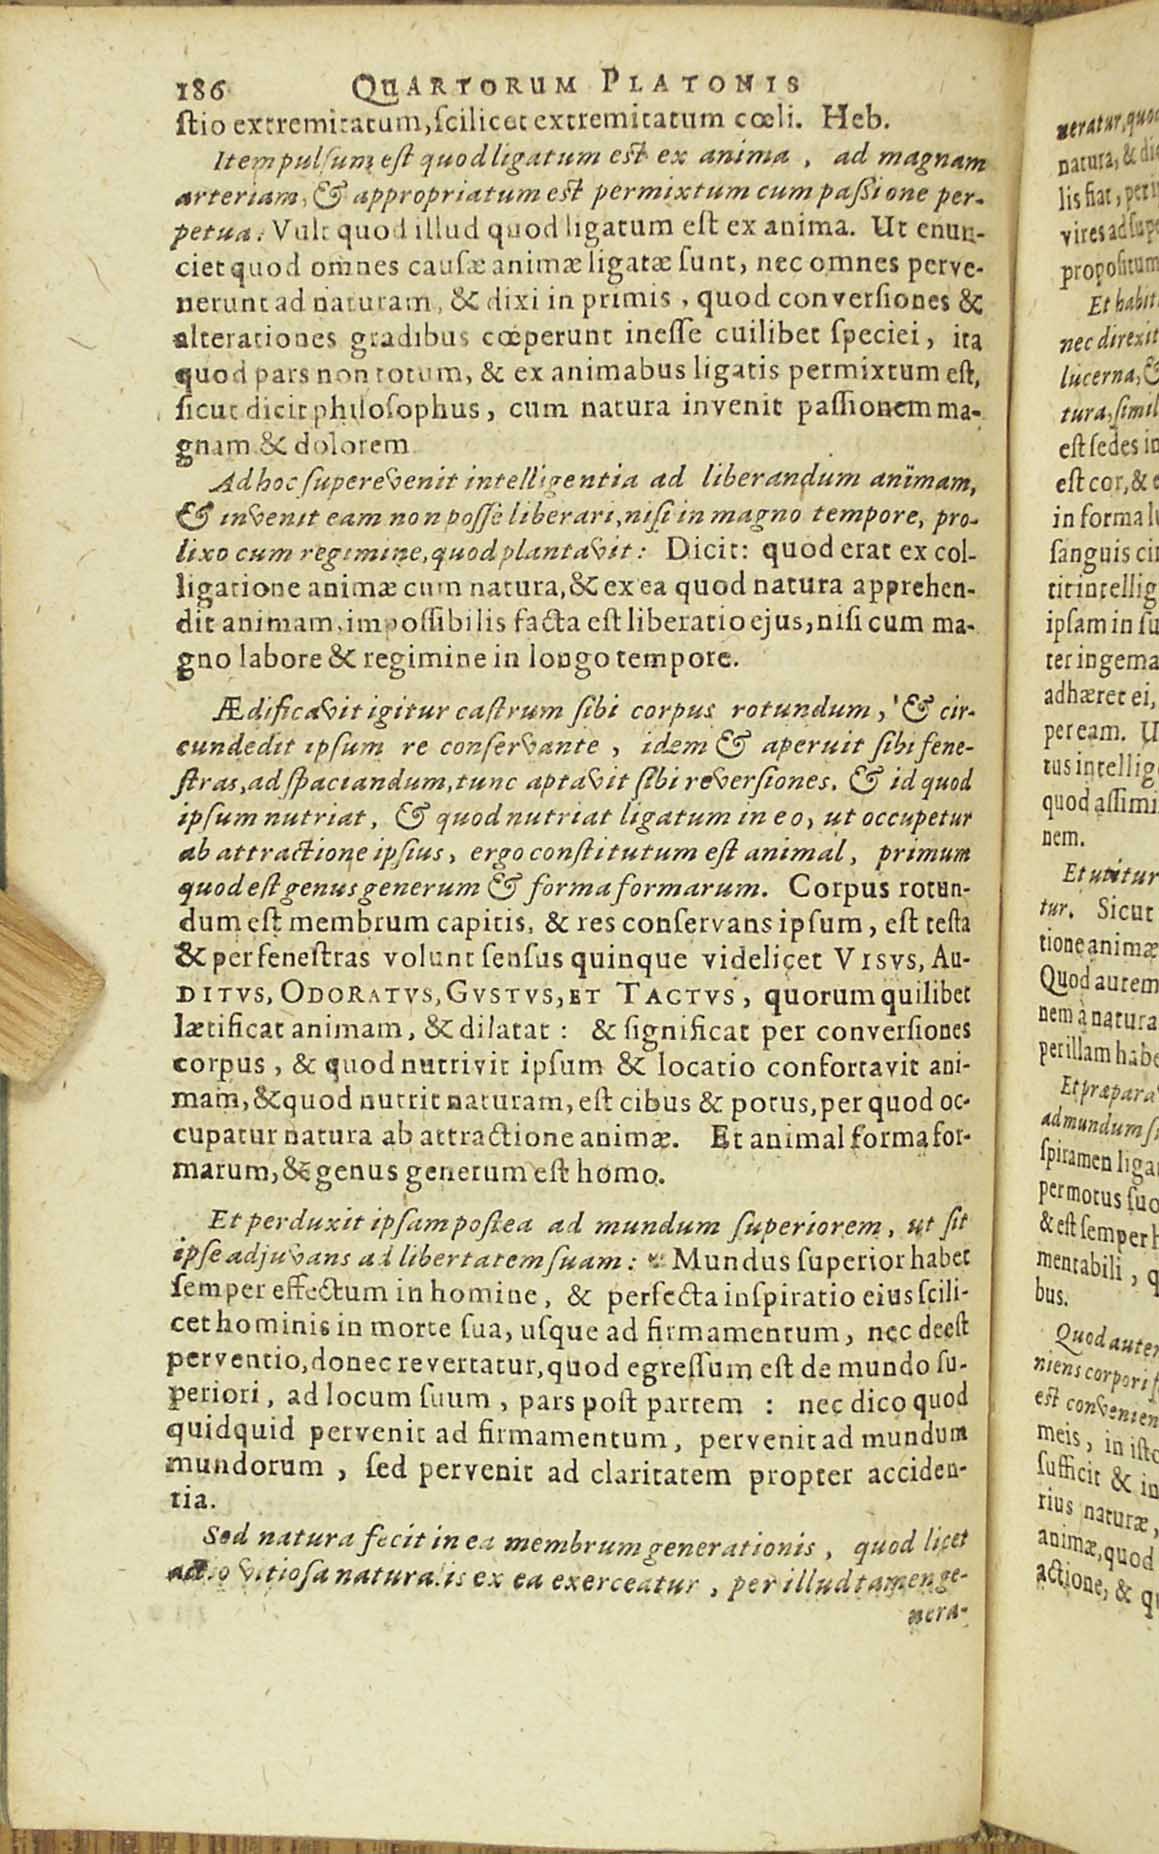 186 QUARTORUM PLATONIS
ſtio extremitatum, ſcilicet extremitatum cœli. Heb.
Item pulſum eſt quod ligatum eſt ex anima, ad magnam
arteriam, & appropriatum eſt permixtum cum paſſione per-
petua. Vult quod illud quod ligatum eſt ex anima. Ut enun-
ciet quod omnes cauſæ animæ ligatæ ſunt, nec omnes perve-
nerunt ad naturam, & dixi in primis, quod converſiones &
alterationes gradibus cœperunt ineſſe cuilibet ſpeciei, ita
quod pars non totum, & ex animabus ligatis permixtum eſt,
ſicut dicit philoſophus, cum natura invenit paſſionem ma-
gnam & dolorem
Ad hoc ſuperevenit intelligentia ad liberandum animam,
& invenit eam non poſſe liberari, niſi in magno tempore, pro-
lixo cum regimine, quod plantavit: Dicit: quod erat ex col-
ligatione animæ cum natura, & ex ea quod natura apprehen-
dit animam, impoſſibilis facta eſt liberatio ejus, niſi cum ma-
gno labore & regimine in longo tempore.
Ædificavit igitur caſtrum ſibi corpus rotundum, & cir-
cundedit ipſum re conſervante, idem & aperuit ſibi fene-
ſtras, ad ſpaciandum, tunc aptavit ſibi reverſiones. & id quod
ipſum nutriat, & quod nutriat ligatum in eo, ut occupetur
ab attractione ipſius, ergo conſtitutum eſt animal, primum
quod eſt genus generum & forma formarum. Corpus rotun-
dum eſt membrum capitis, & res conſervans ipſum, eſt teſta
& per feneſtras volunt ſenſus quinque videlicet VISVS, AU-
DITVS, ODORATVS, GVSTVS, ET TACTVS, quorum quilibet
lætificat animam, & dilatat: & ſignificat per converſiones
corpus, & quod nutrivit ipſum & locatio confortavit ani-
mam, & quod nutrit naturam, eſt cibus & potus, per quod oc-
cupatur natura ab attractione animæ. Et animal forma for-
marum, & genus generum eſt homo.
Et perduxit ipſam poſtea ad mundum ſuperiorem, ut ſit
ipſe adjuvans ad libertatem ſuam: Mundus ſuperior habet
ſemper effectum in homine, & perfecta inſpiratio eius ſcili-
cet hominis in morte ſua, uſque ad firmamentum, nec deeſt
perventio, donec revertatur, quod egreſſum eſt de mundo ſu-
periori, ad locum ſuum, pars poſt partem : nec dico quod
quidquid pervenit ad firmamentum, pervenit ad mundum
mundorum, ſed pervenit ad claritatem propter acciden-
tia.
Sed natura fecit in ea membrum generationis, quod licet
actio vitioſa naturalis ex ea exerceatur, per illud tamen ge-
nera-
natura, &
lis fiat, per
vires ad
propoſitum
Et habit
nec direxit
lucerna, &
tura, ſimil
eſt ſedes in
eſt cor, &
in forma
ſanguis
tit intellig
ipſam in ſu
ter ingema
adhæret ei,
pe eam. U
tus intellig
quod aſſimi
nem.
Et utitur
tur. Sicut
tione animæ
Quod autem
nem à natura
per illam habe
Et præpara
ad mundum
ſpiramen liga
per motus ſuo
& eſt ſemper
mentabili, q
bus.
Quod autem
niens corpori
eſt convenien
meis, in iſto
ſufficit & in
rius naturæ,
animæ, quod
actione, & qu